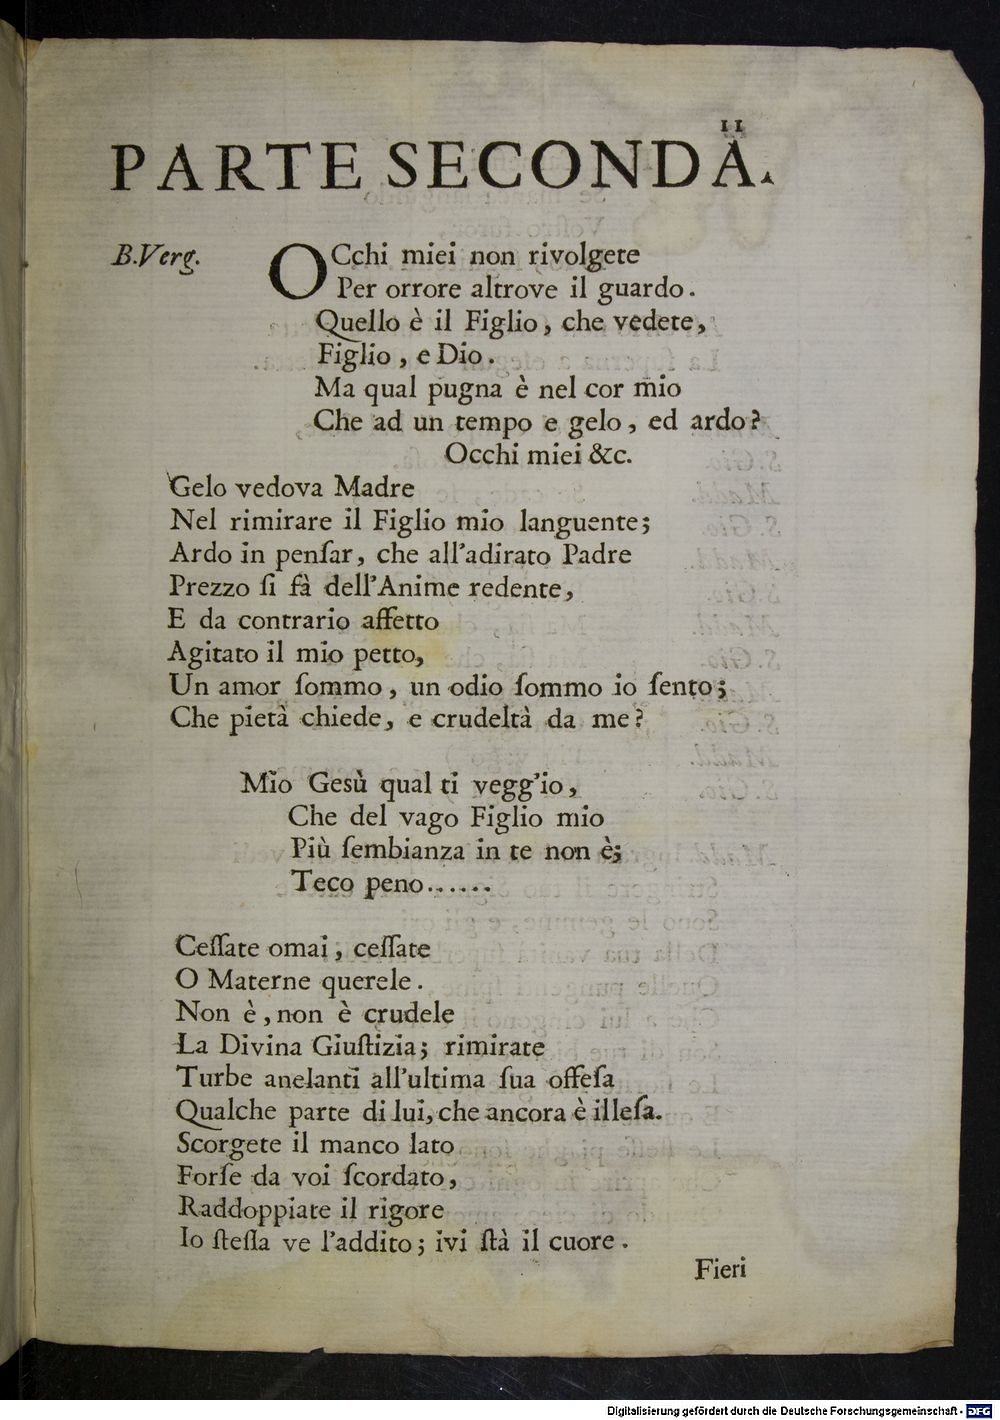 11
PARTE SECONDA.
B.Verg. OCchi miei non rivolgete
Per orrore altrove il guardo.
Quello è il Figlio, che vedete,
Figlio, e Dio.
Ma qual pugna è nel cor mio
Che ad un tempo e gelo, ed ardo?
Occhi miei &c.
Gelo vedova Madre
Nel rimirare il Figlio mio languente;
Ardo in penſar, che all'adirato Padre
Prezzo ſi fà dell'Anime redente,
E da contrario affetto
Agitato il mio petto,
Un amor ſommo, un odio ſommo io ſento;
Che pietà chiede, e crudeltà da me?
Mio Gesù qual ti vegg'io,
Che del vago Figlio mio
Più ſembianza in te non è;
Teco peno......
Ceſſate omai, ceſſate
O Materne querele.
Non è, non è crudele
La Divina Giuſtizia; rimirate
Turbe anelanti all'ultima ſua offeſa
Qualche parte di lui, che ancora è illeſa.
Scorgete il manco lato
Forſe da voi ſcordato,
Raddoppiate il rigore
Io ſteſſa ve l'addito; ivi ſtà il cuore.
Fieri
Digitalisierung gefördert durch die Deutsche Forschungsgemeinschaft - DFG